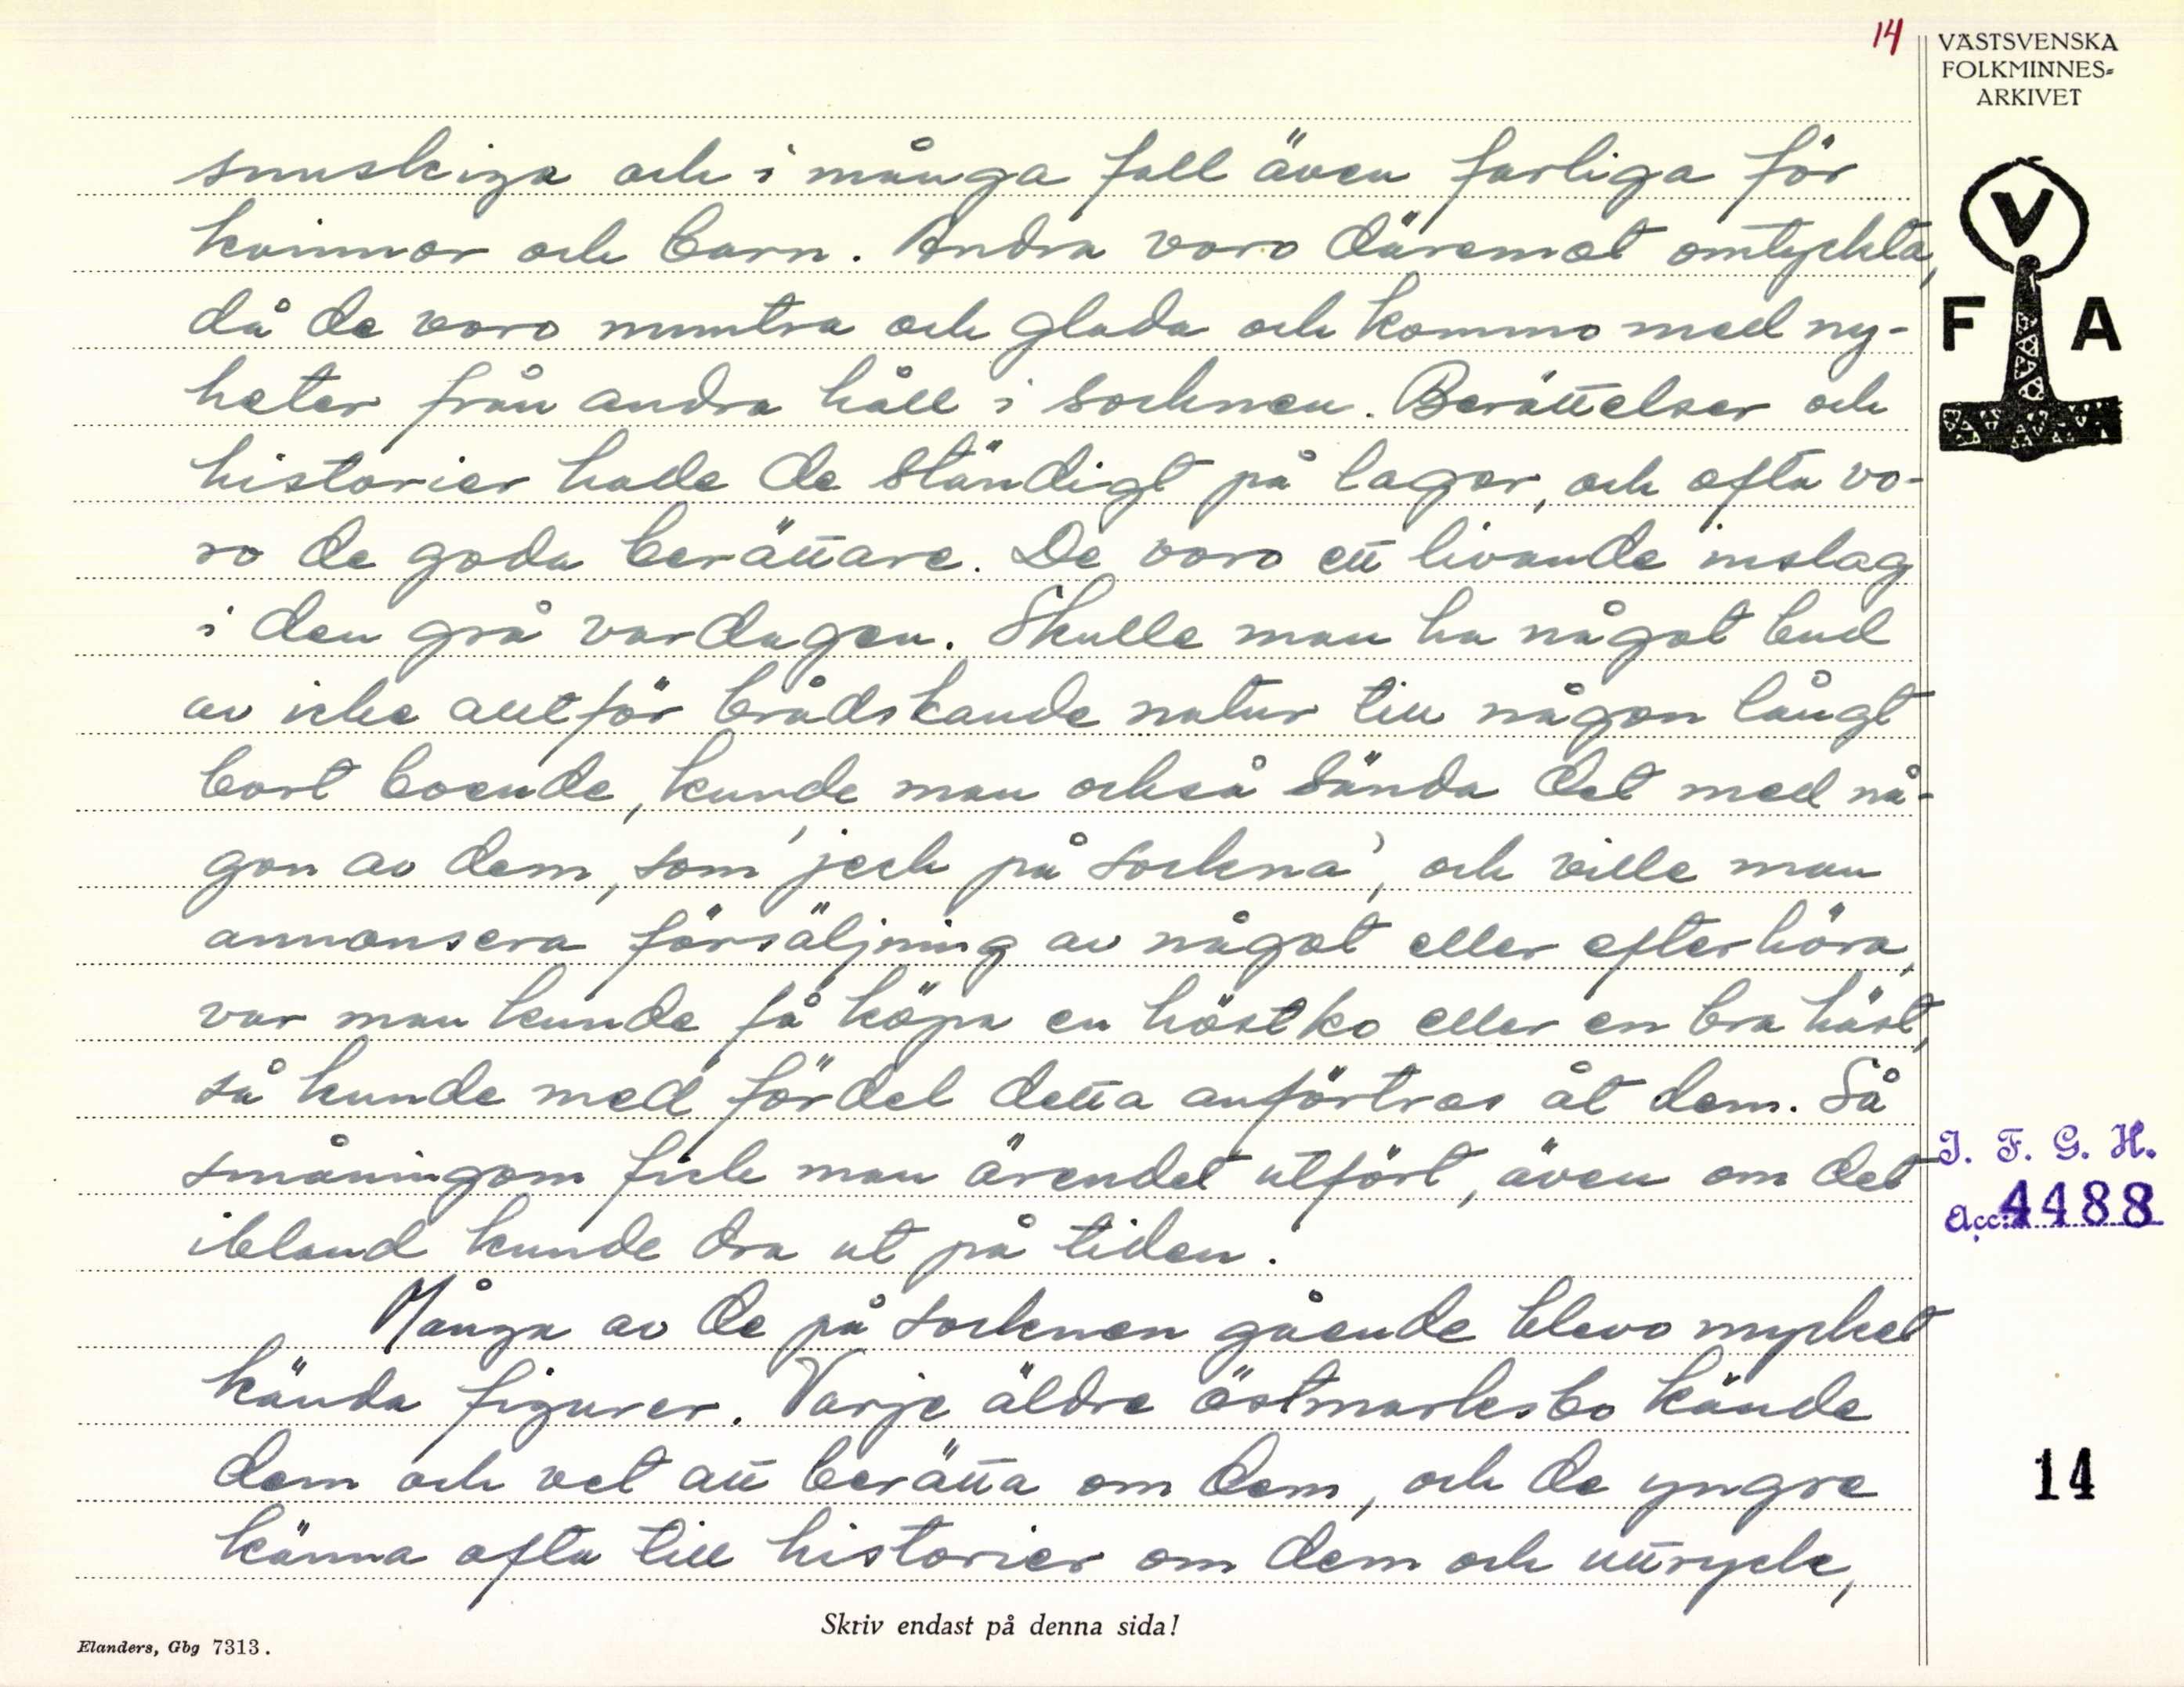 14
VÄSTSVENSKA
FOLKMINNES-
ARKIVET
V
F A
snuskiga och i många fall även farliga för
kvinnor och barn. Andra voro däremot omtyckta,
då de voro muntra och glada och kommo med ny-
heter från andra håll i socknen. Berättelser och
historier hade de ständigt på lager, och ofta vo-
ro de goda berättare. De voro ett livande inslag
i den grå vardagen. Skulle man ha något bud
av icke alltför brådskande natur till någon långt
bort boende, kunde man också sända det med nå-
gon av dem, som 'jeck på sockna', och ville man
annonsera försäljning av något eller efterhöra,
var man kunde få köpa en höstko eller en bra häst,
så kunde med fördel detta anförtros åt dem. Så
småningom fick man ärendet utfört, även om det
ibland kunde dra ut på tiden.
Många av de på socknen gående blevo mycket
kända figurer. Varje äldre östmarksbo kände
dem och vet att berätta om dem, och de yngre
känna ofta till historier om dem och uttryck,
I. F. G. H.
Acc: 4488
14
Skriv endast på denna sida!
Elanders, Gbg 7313.